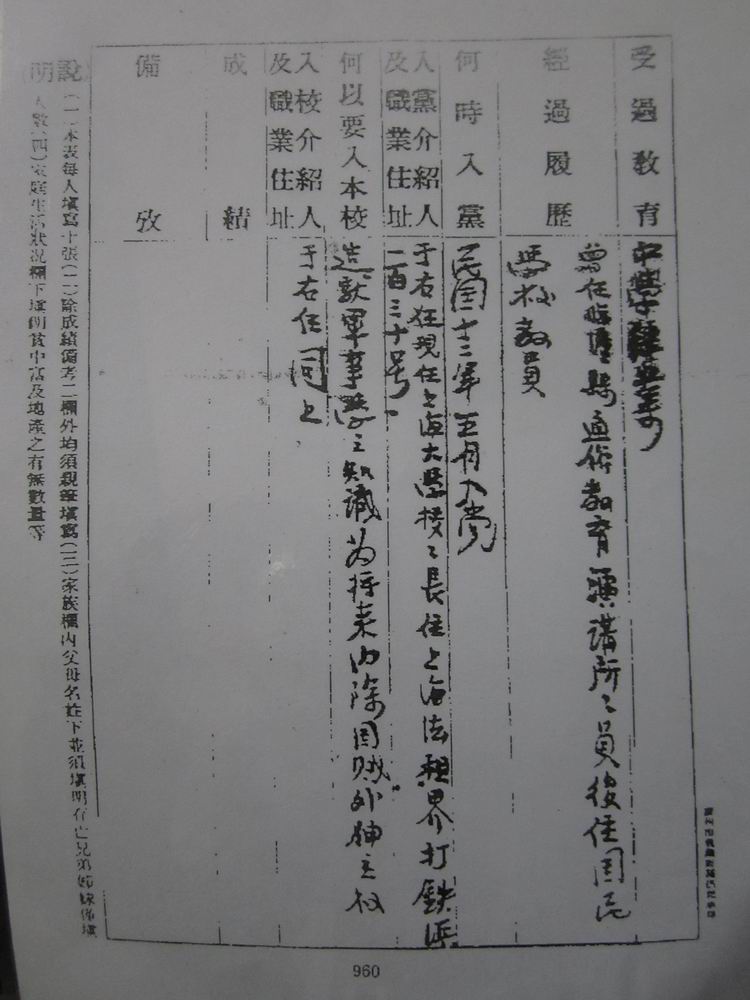 受過教育
中學畢業
經過履歷
曾任臨潼縣通俗教育演講所之員後任國民
學校教員
何時入黨
民国十三年五月入党
入黨介紹人
及職業住址
于右任現任上海大學校之長住上海法租界打鉄浜
二百三十号
何以要入本校
造就軍事學之知識为将来内除国贼外伸主权
入校介紹人
及職業住址
于右任同上
成績
備攷
說明
(一)本表每人填寫十張(二)除成績備考二欄外均須親筆填寫(三)家族欄內父母名姓下並須填明存亡兄弟姊妹係填
人數(四)家庭生活狀況欄下填明貧中富及地產之有無數量等
960